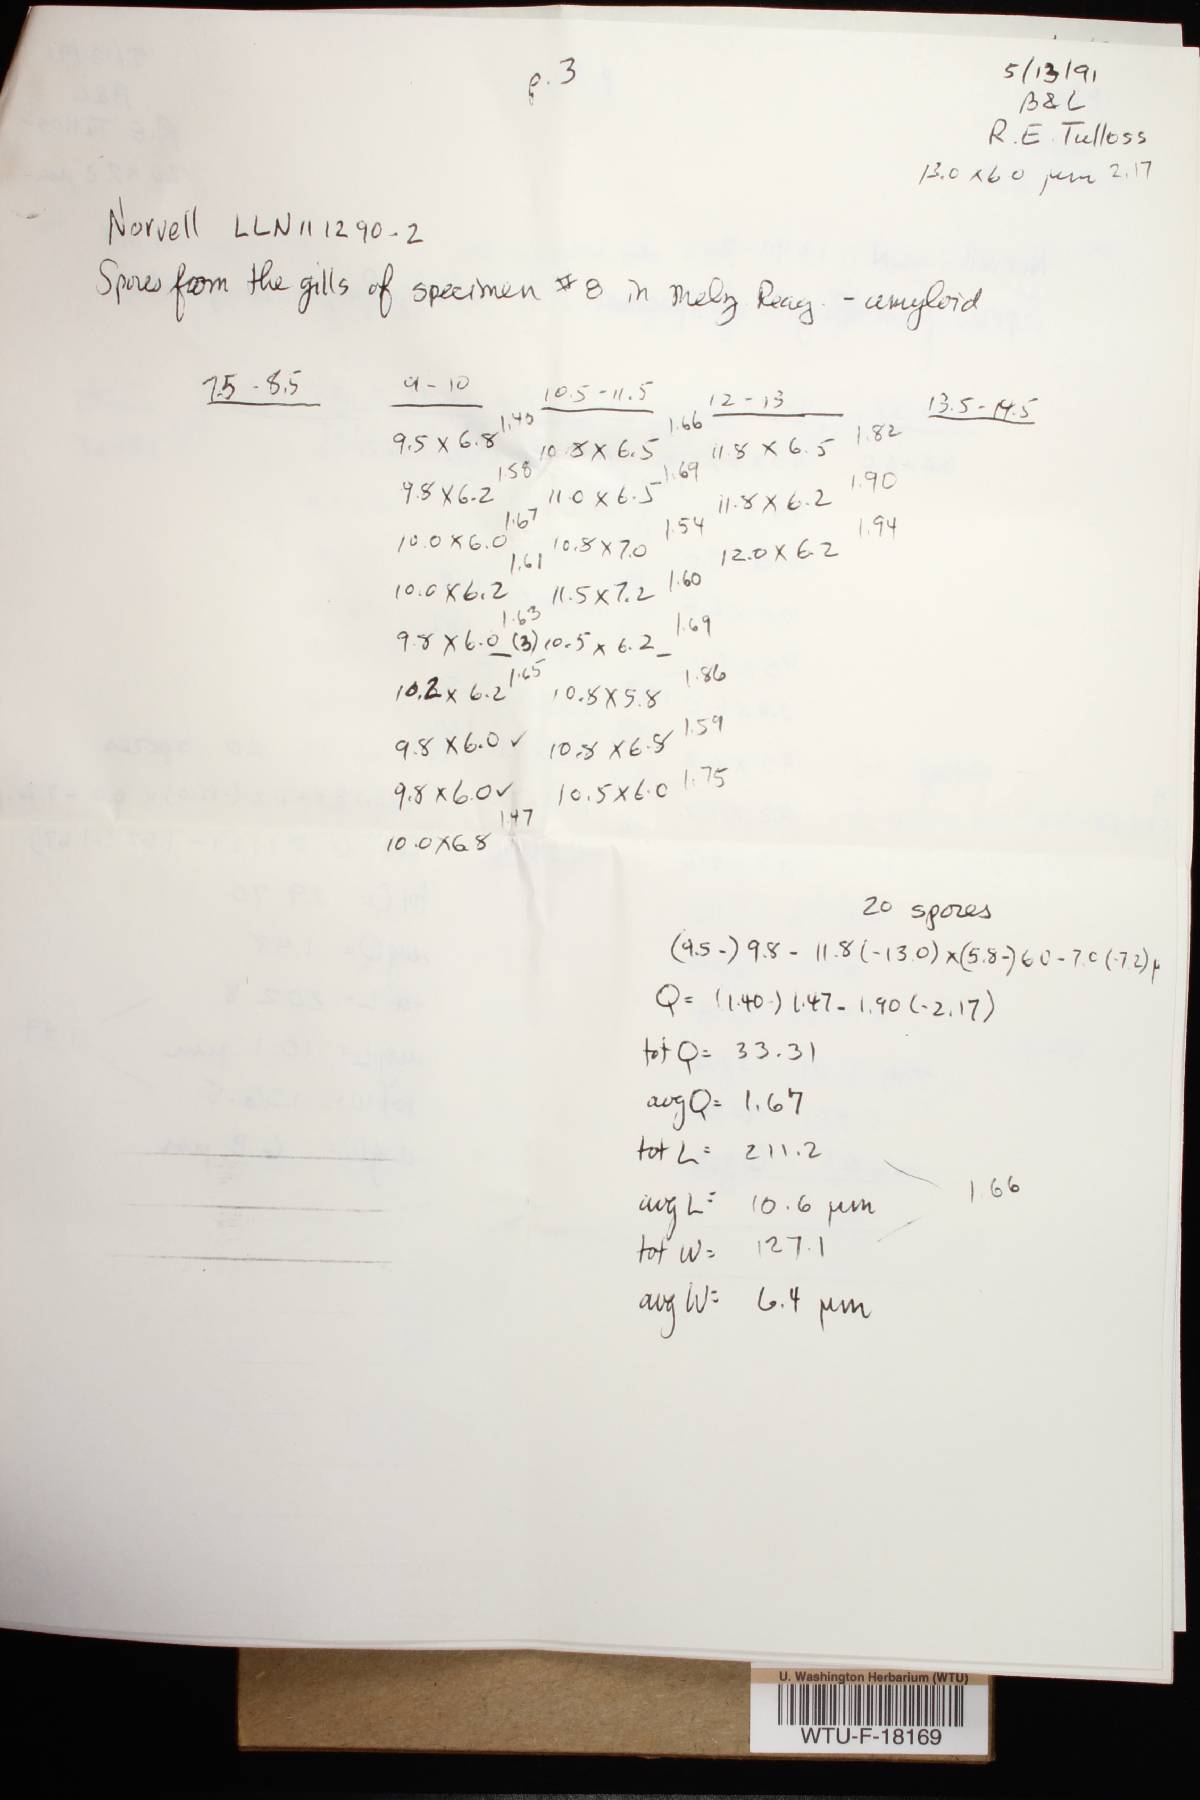 p. 3
5/13/91
B&L
R.E. Tulloss
13.0 x 6.0 µm 2.17
Norvell LLN111290-2
Spores from the gills of specimen #8 in Melz Reag. - amyloid
7.5 - 8.5 9 - 10 10.5 - 11.5 12 - 13 13.5 - 14.5
9.5 x 6.8 1.40 10.8 x 6.5 1.66 11.8 x 6.5 1.82
9.8 x 6.2 1.58 11.0 x 6.5 1.69 11.8 x 6.2 1.90
10.0 x 6.0 1.67 10.8 x 7.0 1.54 12.0 x 6.2 1.94
10.0 x 6.2 1.61 11.5 x 7.2 1.60
9.8 x 6.0 (3) 1.63 10.5 x 6.2 1.69
10.2 x 6.2 1.65 10.8 x 5.8 1.86
9.8 x 6.0 ✓ 10.8 x 6.8 1.59
9.8 x 6.0 ✓ 10.5 x 6.0 1.75
10.0 x 6.8 1.47
20 spores
(9.5-) 9.8 - 11.8 (-13.0) x (5.8-) 6.0 - 7.0 (-7.2) µ
Q = (1.40-) 1.47 - 1.90 (-2.17)
tot Q = 33.31
avg Q = 1.67
tot L = 211.2
avg L = 10.6 µm
1.66
tot W = 127.1
avg W = 6.4 µm
U. Washington Herbarium (WTU)
WTU-F-18169